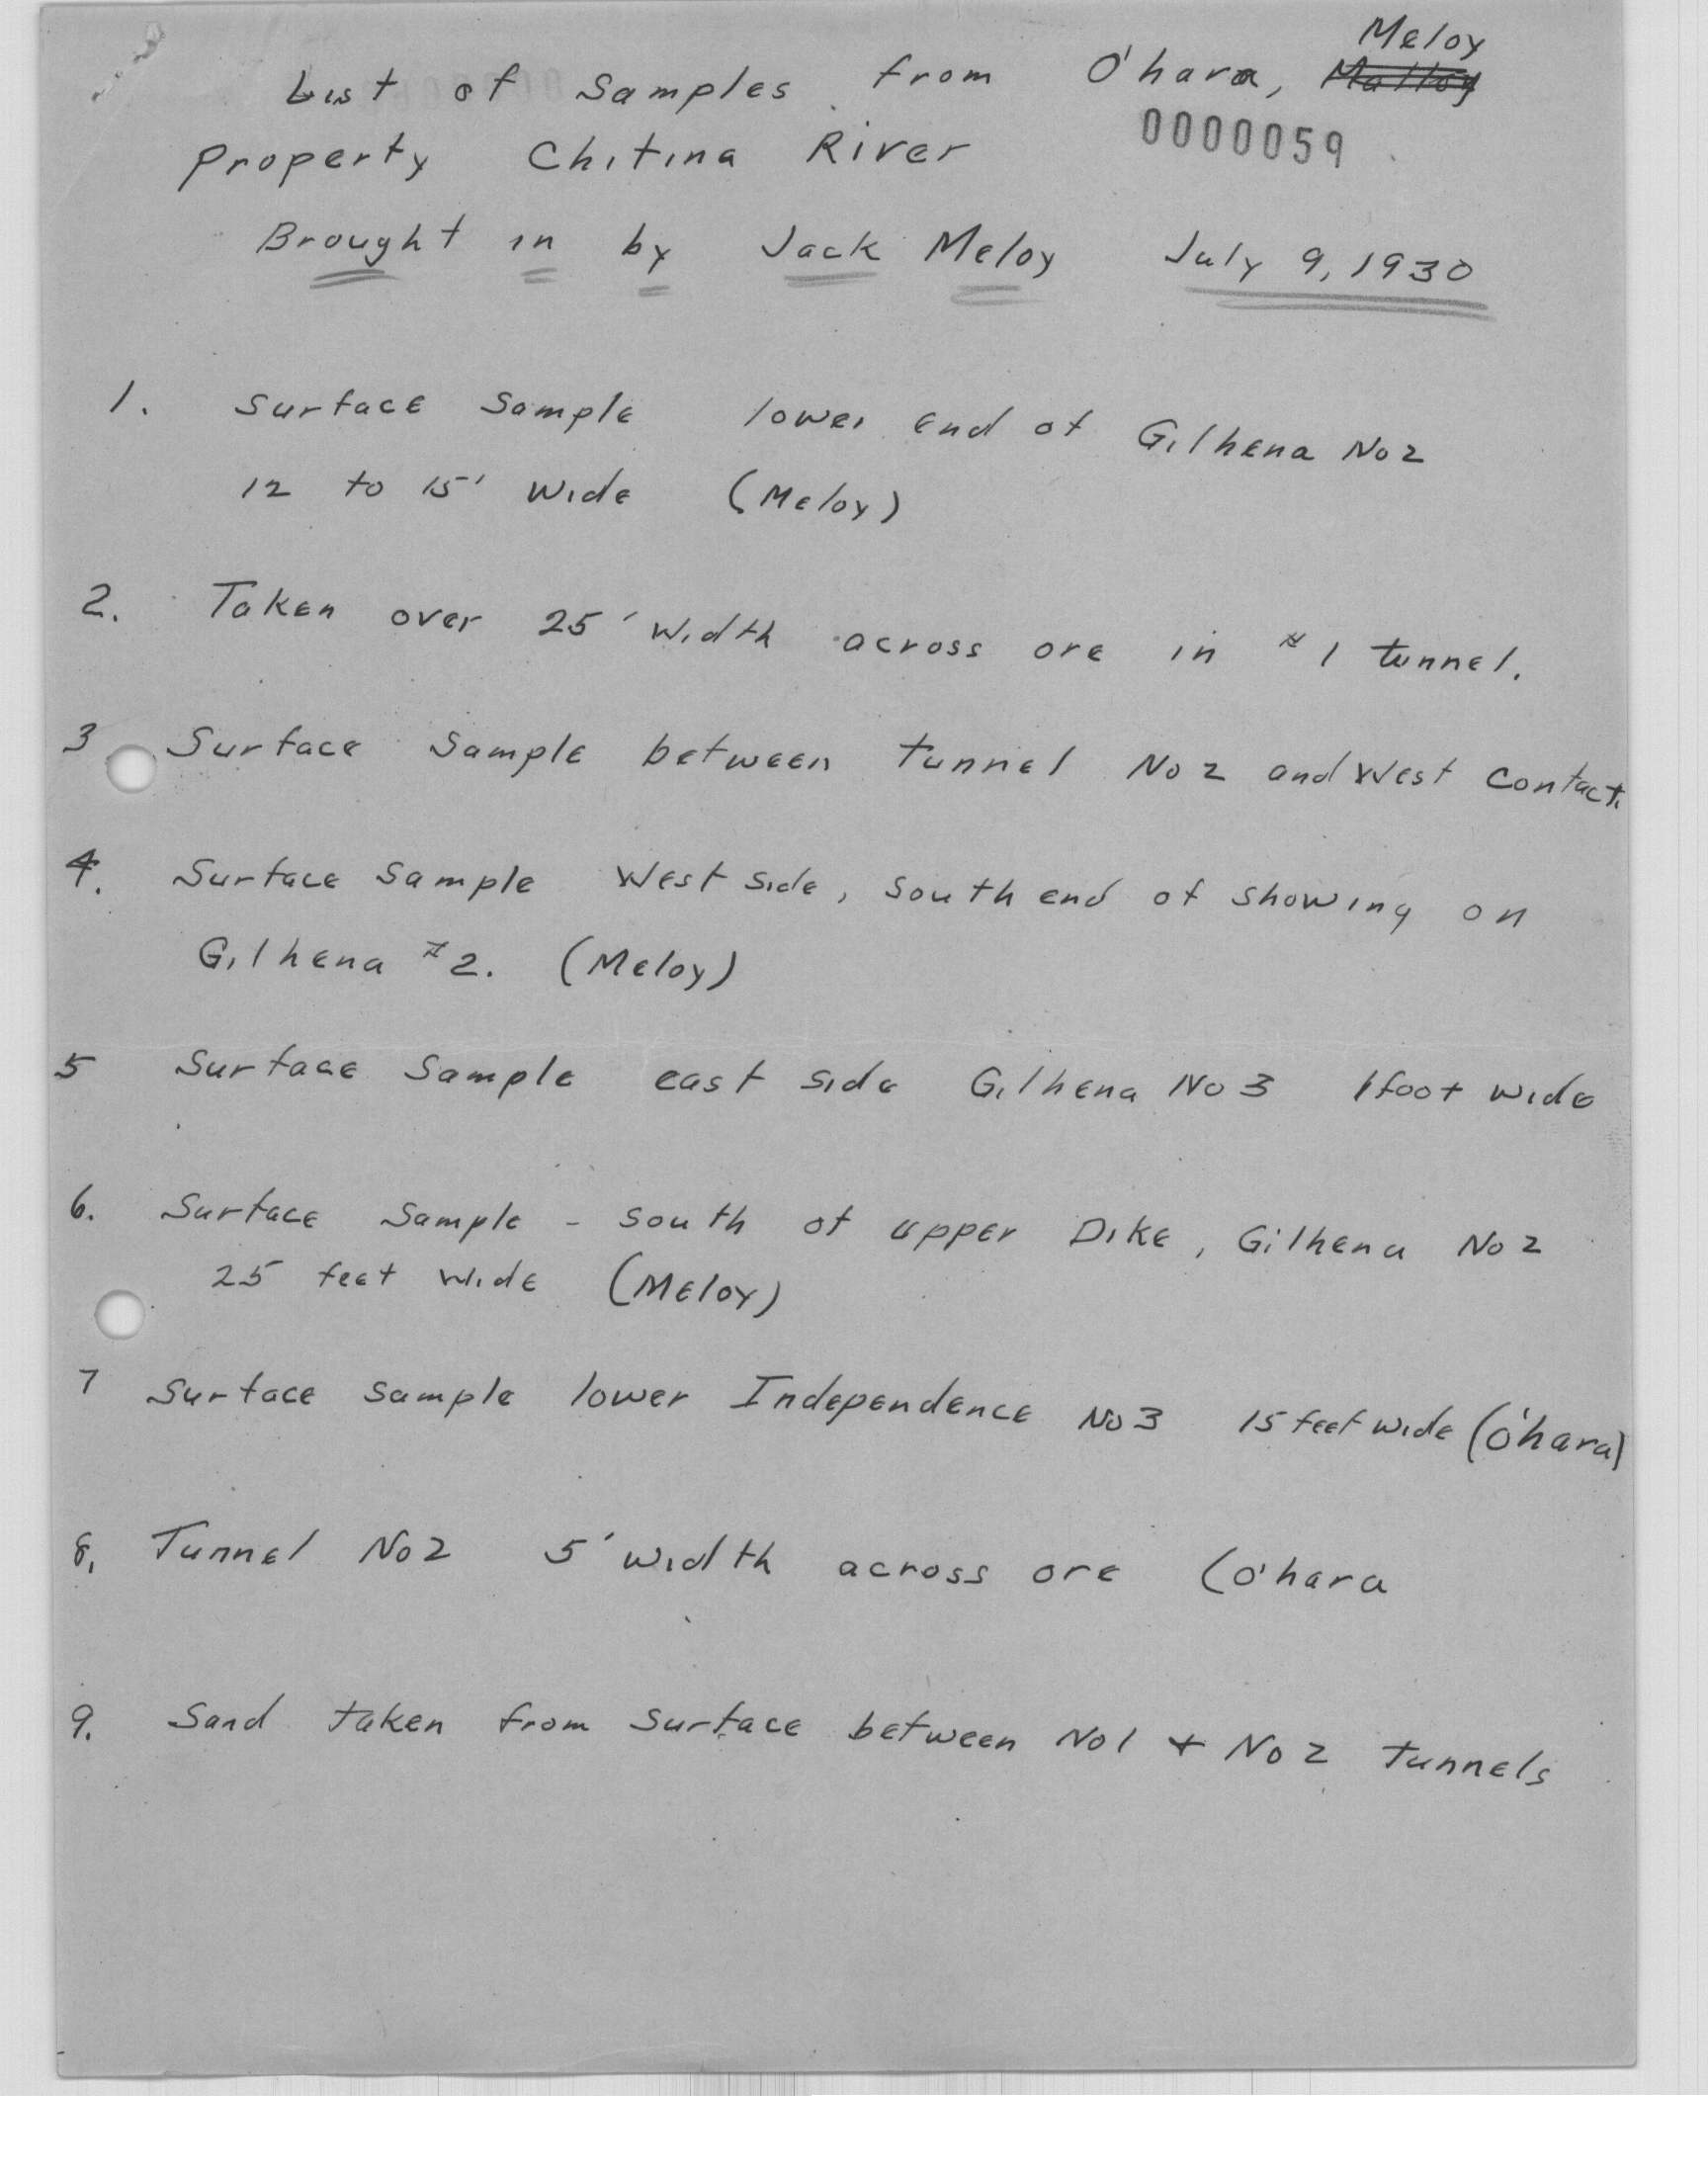 List of Samples from O'hara, Meloy Malloy
0000059
Property Chitina River
Brought in by Jack Meloy July 9, 1930
1. Surface Sample lower end of Gilhena No 2
12 to 15' Wide (Meloy)
2. Taken over 25' Width across ore in #1 tunnel.
3 Surface Sample between tunnel No 2 and West Contact.
4. Surface Sample West side, South end of showing on
Gilhena #2. (Meloy)
5 Surface Sample east side Gilhena No 3 1 foot wide
6. Surface Sample - South of upper Dike, Gilhena No 2
25 feet wide (Meloy)
7 Surface sample lower Independence No 3 15 feet wide (O'hara)
8. Tunnel No 2 5' width across ore (O'hara
9. Sand taken from Surface between No 1 + No 2 tunnels